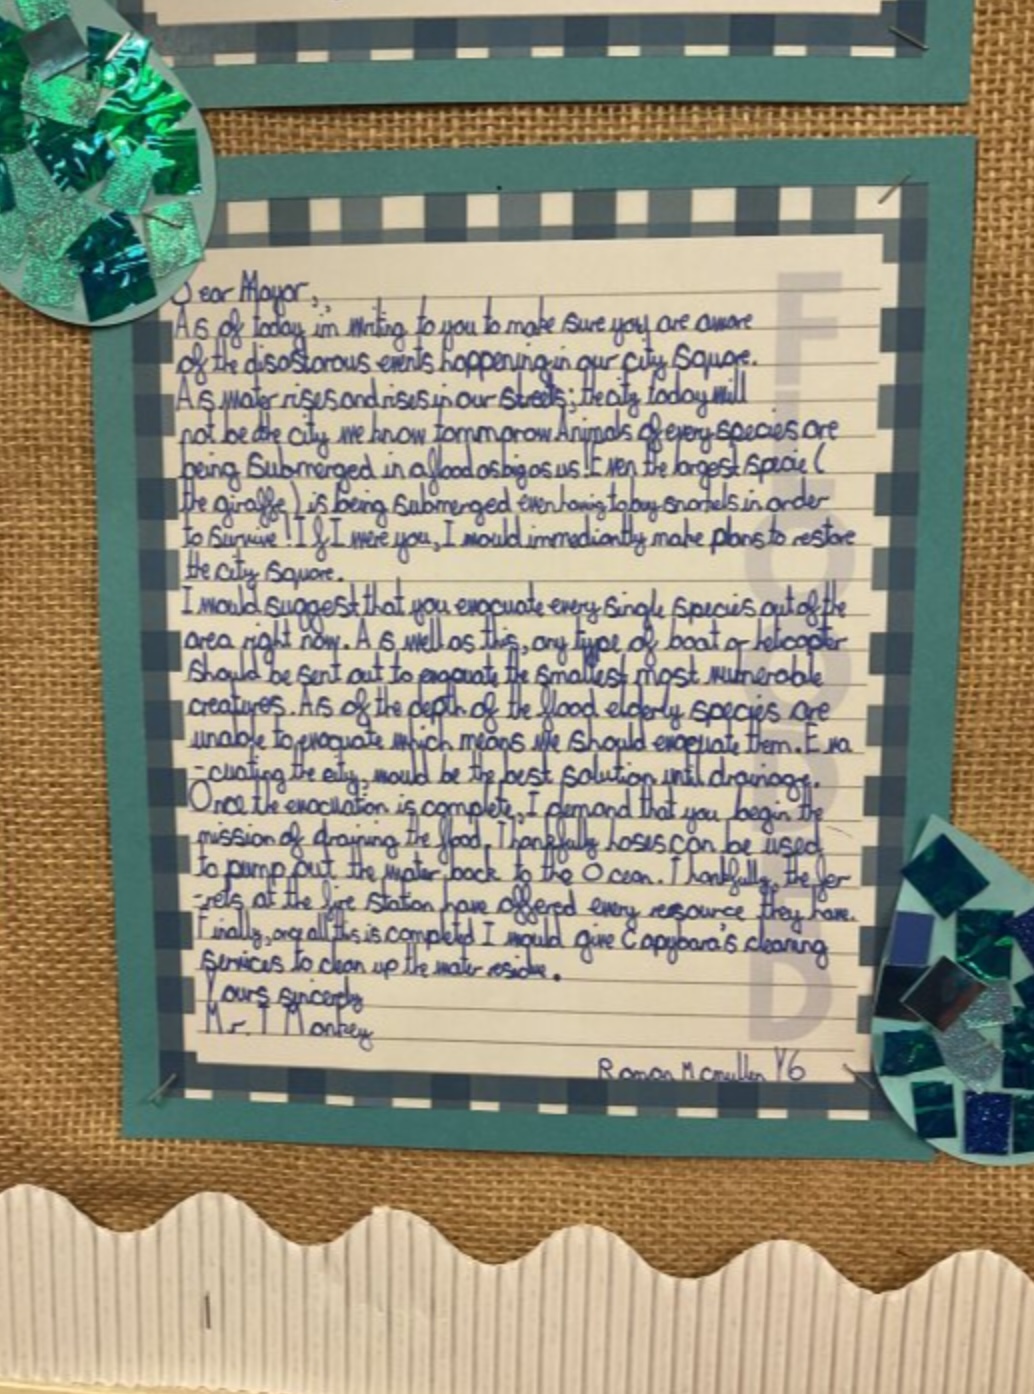 Dear Mayor,
As of today im writing to you to make sure you are aware
of the disastorous events happening in our city square.
As water rises and rises in our streets; the city today will
not be the city we know tommorow Animals of every species are
being submerged in a flood as big as us! Even the largest specie (
the giraffe) is being submerged even having to buy snorkels in order
to survive! If I were you, I would immediantly make plans to restore
the city square.
I would suggest that you evacuate every single species out of the
area right now. As well as this, any type of boat or helicopter
should be sent out to evacuate the smallest most vulnerable
creatures. As of the depth of the flood elderly species are
unable to evacuate which means we should evacuate them. Eva
-cuating the city, would be the best solution until drainage.
Once the evacuation is complete, I demand that you begin the
mission of draining the flood. Thankfully hoses can be used
to pump out the water back to the Ocean. Thankfully, the fer
-rets at the fire station have offered every resource they have.
Finally, once all this is completed I would give Capybara's cleaning
services to clean up the water residue.
Yours sincerely
Mr. T Monkey
Roman Mcmullen Y6
FLOOD